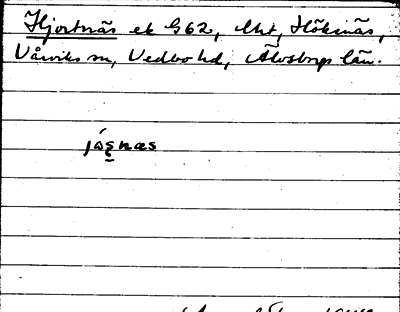 Hjortnäs ek G62, Mht, Höksnäs,
Vårviks sn, Vedbo hd, Älvsborgs län.
jósnæs